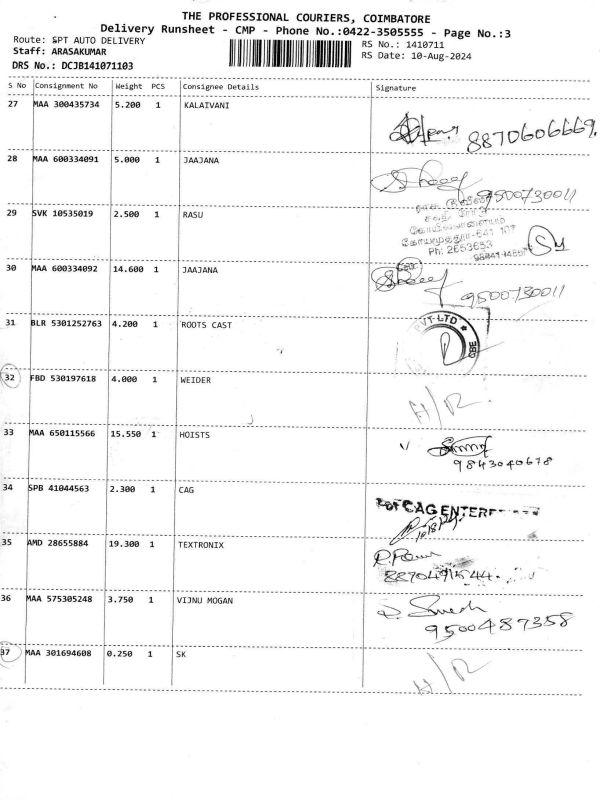 THE PROFESSIONAL COURIERS, COIMBATORE
Delivery Runsheet - CMP - Phone No.:0422-3505555 - Page No.:3
Route: SPT AUTO DELIVERY
RS No.: 1410711
Staff: ARASAKUMAR
RS Date: 10-Aug-2024
DRS No.: DCJB141071103
S No Consignment No Weight PCS Consignee Details Signature
27 MAA 300435734 5.200 1 KALAIVANI
8870606669.
28 MAA 600334091 5.000 1 JAAJANA
9500730011
29 SVK 10535019 2.500 1 RASU
கோயமுத்தூர்-641 107
Ph: 2653653
30 MAA 600334092 14.600 1 JAAJANA
9500730011
31 BLR 5301252763 4.200 1 ROOTS CAST
PVT-LTD
CBE
32 FBD 530197618 4.000 1 WEIDER
H/R.
33 MAA 650115566 15.550 1 HOISTS
9843040678
34 SPB 41044563 2.300 1 CAG
For CAG ENTERP
10/8/24.
35 AMD 28655884 19.300 1 TEXTRONIX
36 MAA 575305248 3.750 1 VIJNU MOGAN
9500487358
37 MAA 301694608 0.250 1 SK
H/R